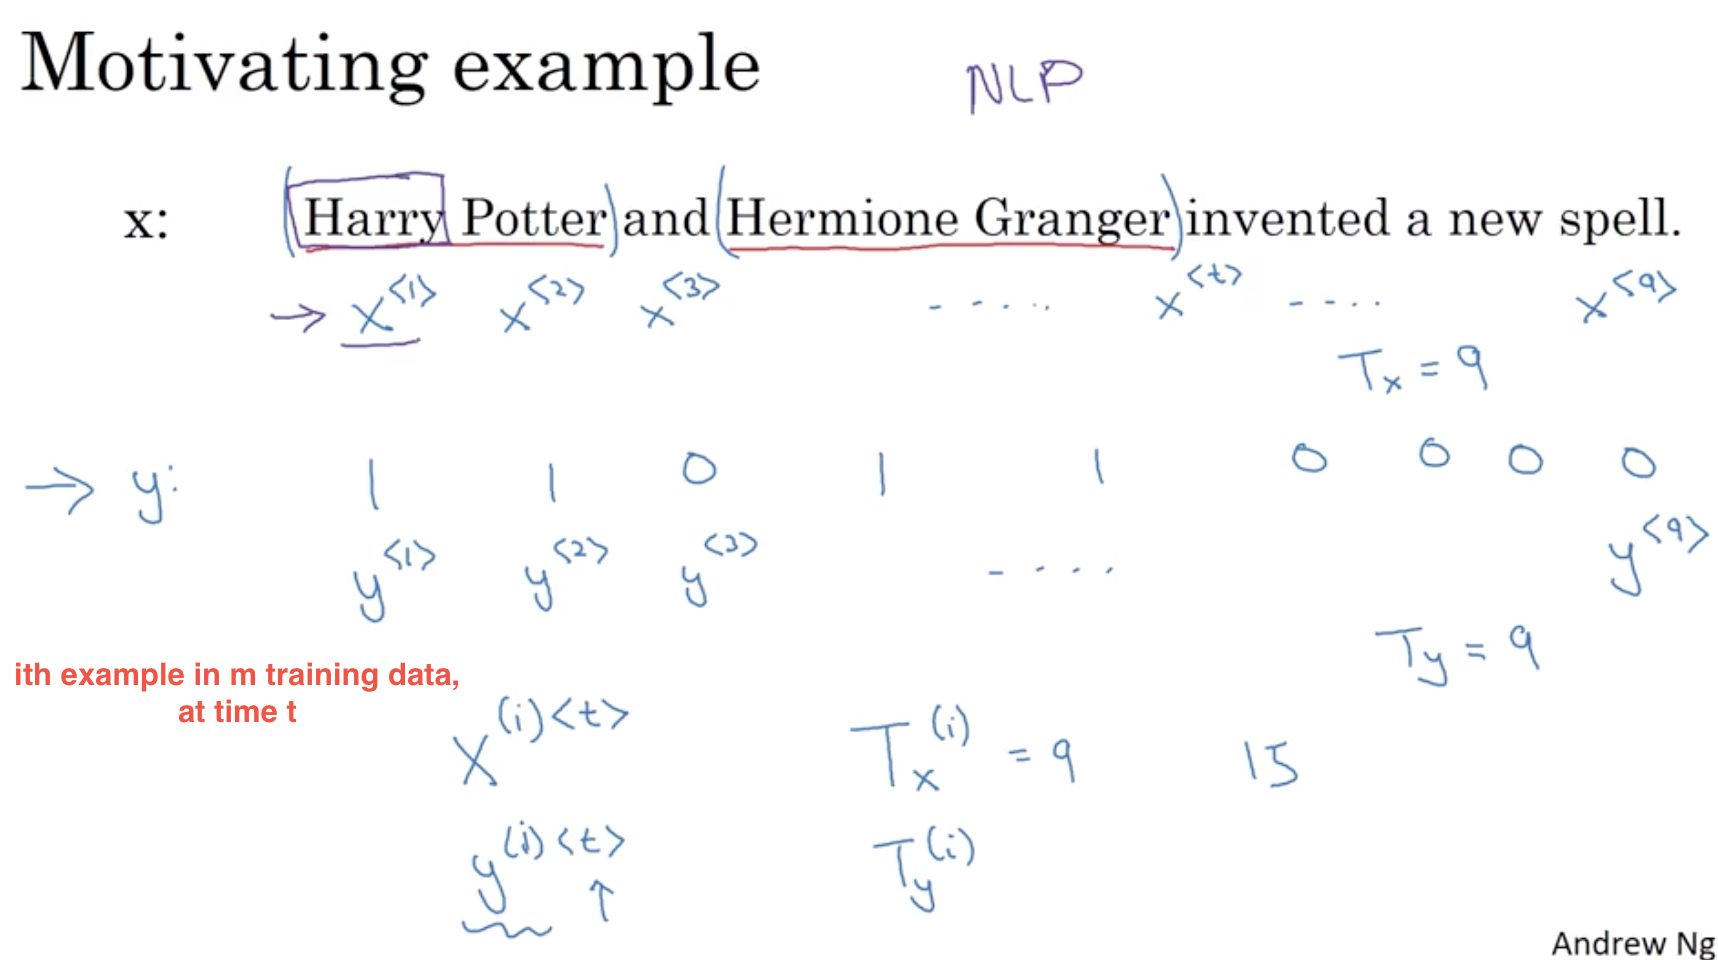 Motivating example NLP
x: Harry Potter and Hermione Granger invented a new spell.
→ x<1> x<2> x<3> ..... x<t> .... x<9>
Tx = 9
→ y: 1 1 0 1 1 0 0 0 0
y<1> y<2> y<3> .... y<9>
Ty = 9
ith example in m training data,
at time t
x(i)<t> Tx(i) = 9 15
y(i)<t> Ty(i)
Andrew Ng